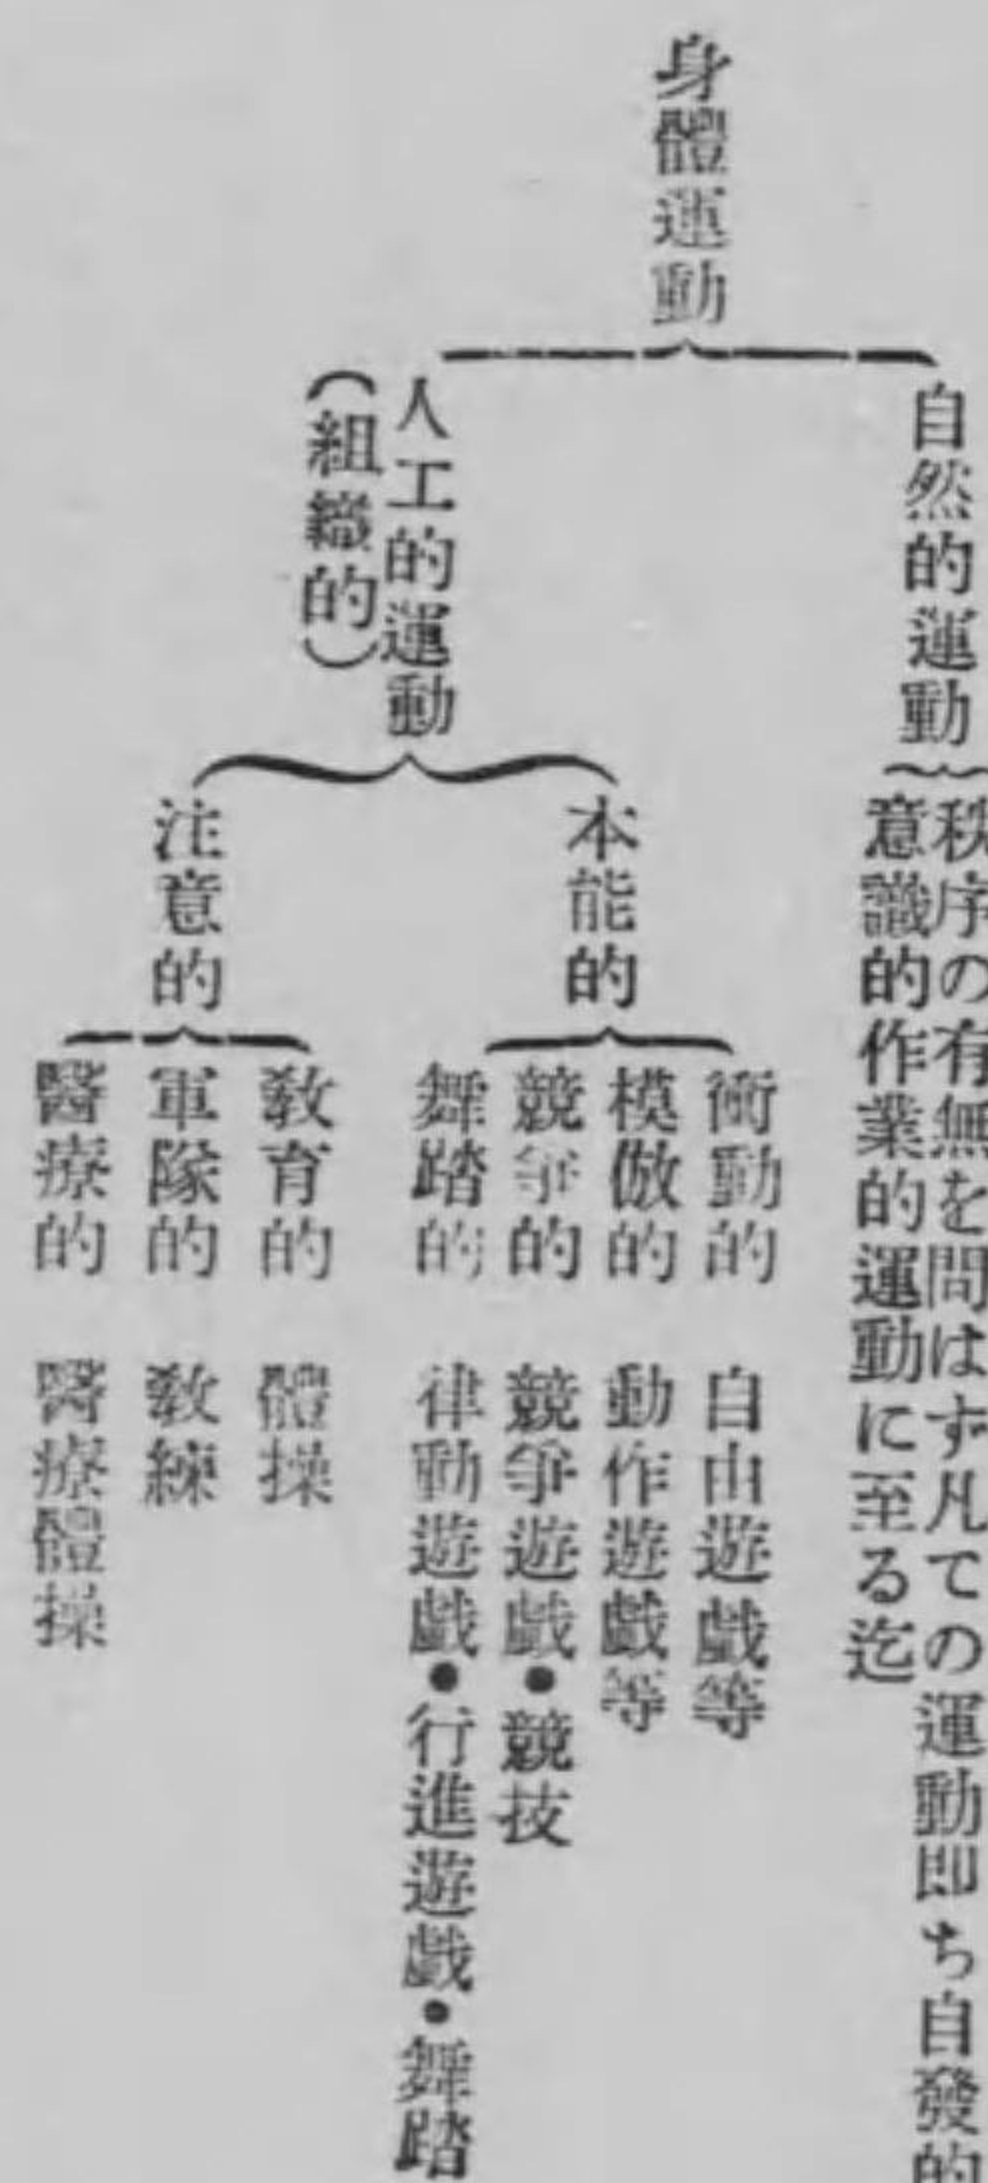 身體運動
自然的運動
秩序の有無を問はず凡ての運動即ち自發的
意識的作業的運動に至る迄
人工的運動
(組織的)
本能的
衝動的　自由遊戲等
模倣的　動作遊戲等
競爭的　競爭遊戲●競技
舞踏的　律動遊戲●行進遊戲●舞踏
注意的
教育的　體操
軍隊的　教練
醫療的　醫療體操